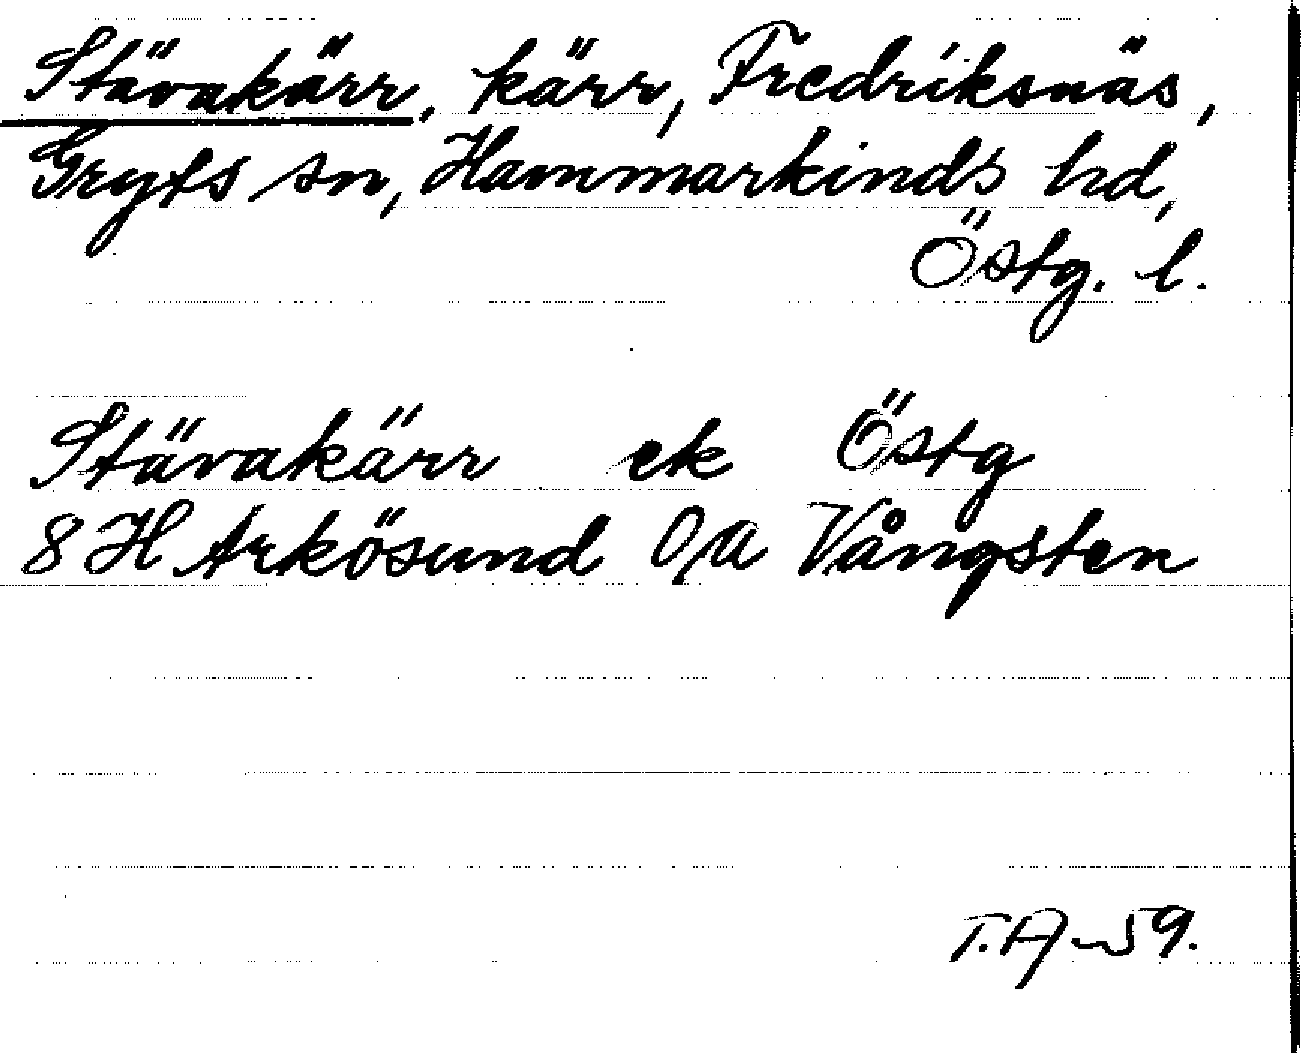 Stävakärr, kärr, Fredriksnäs,
Gryts sn, Hammarkinds hd,
Östg. l.
Stävakärr ek Östg
8H Arkösund O/a Vångsten
T.A-59.